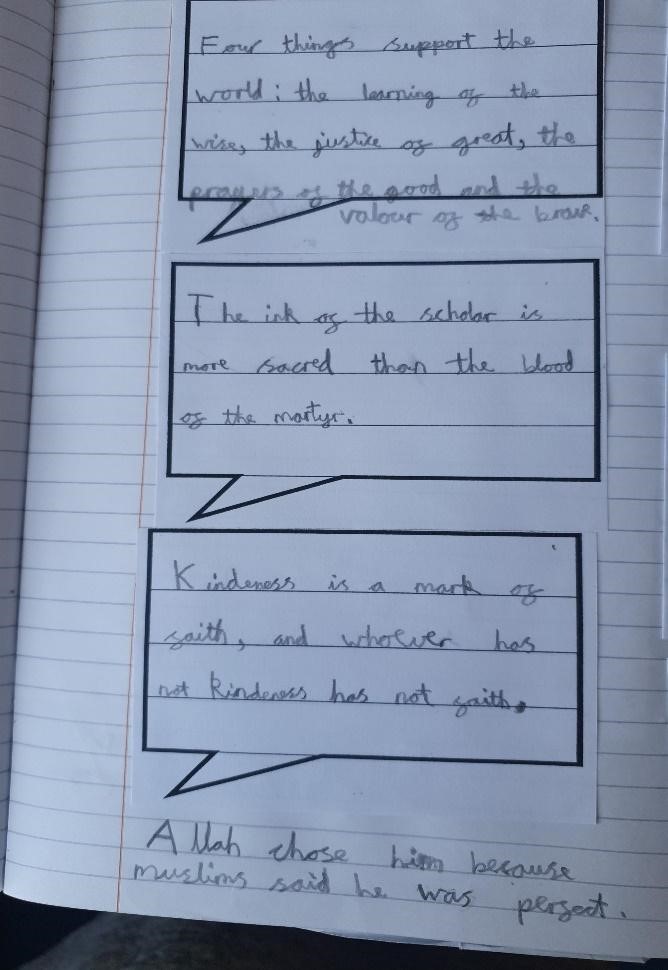 Four things support the
world: the learning of the
wise, the justice of great, the
prayers of the good and the
valour of the brave.
The ink of the scholar is
more sacred than the blood
of the martyr.
Kindeness is a mark of
faith, and whoever has
not kindeness has not faith.
Allah chose him because
muslims said he was perfect.